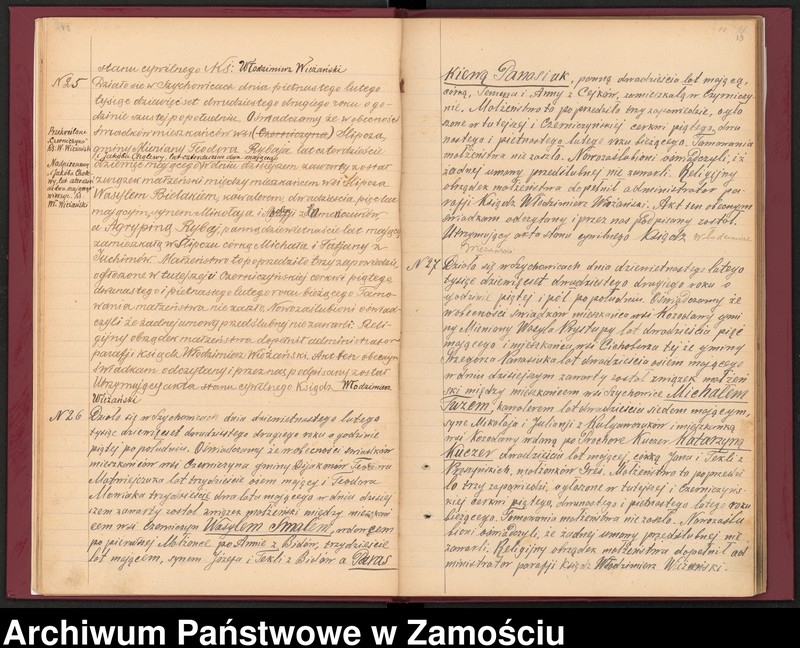 stanu cywilnego Ks: Włodzimierz Wieżański
N 25
Działo się w Szychowicach dnia piętnastego lutego
tysiąc dziewięćset dwudziestego drugiego roku o go-
dzinie szóstej popołudniu. Oświadczamy że w obecności
świadków mieszkańców wsi (Czerniczyna) Ślipcza,
gminy Mieniany Teodora Rybaja lat czterdzieści
i Jakóba Cholewy, lat czterdzieści dwa mającego
dziewięć mającego w dniu dzisiejszym zawarty został
związek małżeński między mieszkańcem wsi Ślipcza
Wasylem Bielakiem, kawalerem, dwadzieścia pięć lat
mającym, synem Mikołaja i
a Agrypiną Rybaj, panną dziewiętnaście lat mającą
zamieszkałą w Ślipczu córką Michała i Tatjany z
Suchimów. Małżeństwo to poprzedziło trzy zapowiedzie,
ogłoszone w tutejszej i Czerniczyńskiej cerkwi piątego
dwunastego i piętnastego lutego roku bieżącego Tamo-
wania małżeństwa nie zaszło. Nowozaślubieni oświad-
czyli że żadnej umowy przedślubnej nie zawarli. Reli-
gijny obrządek małżeństwa dopełnił administrator
parafji ksiądz Włodzimierz Wieżański. Akt ten obecnym
świadkom odczytany i przez nas podpisany został
Utrzymujący akta stanu cywilnego Ksiądz Włodzimierz
Wieżański
Przekreślone
"Czerniczyna"
Ks. W. Wieżański
Nadpisano
"i Jakóba Chole-
wy, lat czterdzie-
ści dwa mającego"
wierzę. Ks.
Wł. Wieżański
N 26
Działo się w Szychowicach dnia dziewiętnastego lutego
tysiąc dziewięćset dwudziestego drugiego roku o godzinie
piątej po południu. Oświadczamy że w obecności świadków
mieszkańców wsi Czerniczyna gminy Dijakonów Teodora
Matwiejczuka lat trzydzieście osiem mający i Teodora
Moniaka trzydzieścis dwa latu mającego w dniu dzisiej
szem zawarty został związek małżeński między mieszkań
cem wsi Czerniczyn Wasylem Smalem, wdowcem
po pierwszej Małżonce po Annie z Bidów, trzydzieście
lat mającem, synem Józefa i Tekli z Bidów a Paras
kiewą Panasiuk, panną dwadzieścia lat mającą,
córką, Tomasza i Anny z Cejków, zamieszkałą w Czerniczy-
nie. Małżeństwo to poprzedziło trzy zapowiedzie, ogło
szone w tutejszej i Czerniczyńskiej cerkwi piątego, dwu
nastego i piętnastego lutego roku bieżącego. Tamowania
małżeństwa nie zaszło. Nowozaślubieni oświadczyli, iż
żadnej umowy przedślubnej nie zawarli. Religijny
obrządek małżeństwa dopełnił administrator pa-
rafji Ksiądz Włodzimierz Wieżański. Akt ten obecnym
świadkom odczytany i przez nas podpisany został.
Utrzymujący akta stanu cywilnego Ksiądz Włodzimierz
Wieżański
N 27
Działo się w Szychowicach dnia dziewiętnastego lutego
tysiąc dziewięćset dwudziestego drugiego roku o
godzinie piątej i pół po południu. Oświadczamy że
w obecności świadków mieszkańców wsi Kozodawy gmi
ny Mieniany Wasyla Prystupy lat dwadzieścia pięć
mającego i mieszkańca wsi Cichobórza tej że gminy
Grzegorza Panasiuka lat dwadzieścia osiem mającego
w dniu dzisiejszym zawarty został związek małżeń
ski między mieszkańcem wsi Szychowice Michałem
Juzem, kawalerem lat dwadzieścia siedem mającym,
syna Mikołaja i Julianji z i mieszkanką
wsi Kozodawy wdową po Prochorze Kuczer Katarzyną
Kuczer dwadzieścia lat mającej, córką Jana i Tekli z
małżonków Gryś. Małżeństwo to poprzedzi
ło trzy zapowiedzi, ogłoszone w tutejszej i Czerniczyńs-
kiej cerkwi piątego, dwunastego i piętnastego lutego roku
bieżącego. Tamowania małżeństwa nie zaszło. Nowozaślu
bieni oświadczyli, że żadnej umowy przedślubnej nie
zawarli. Religijny obrządek małżeństwa dopełnił ad
ministrator parafji Ksiądz Włodzimierz Wieżański.
Archiwum Państwowe w Zamościu